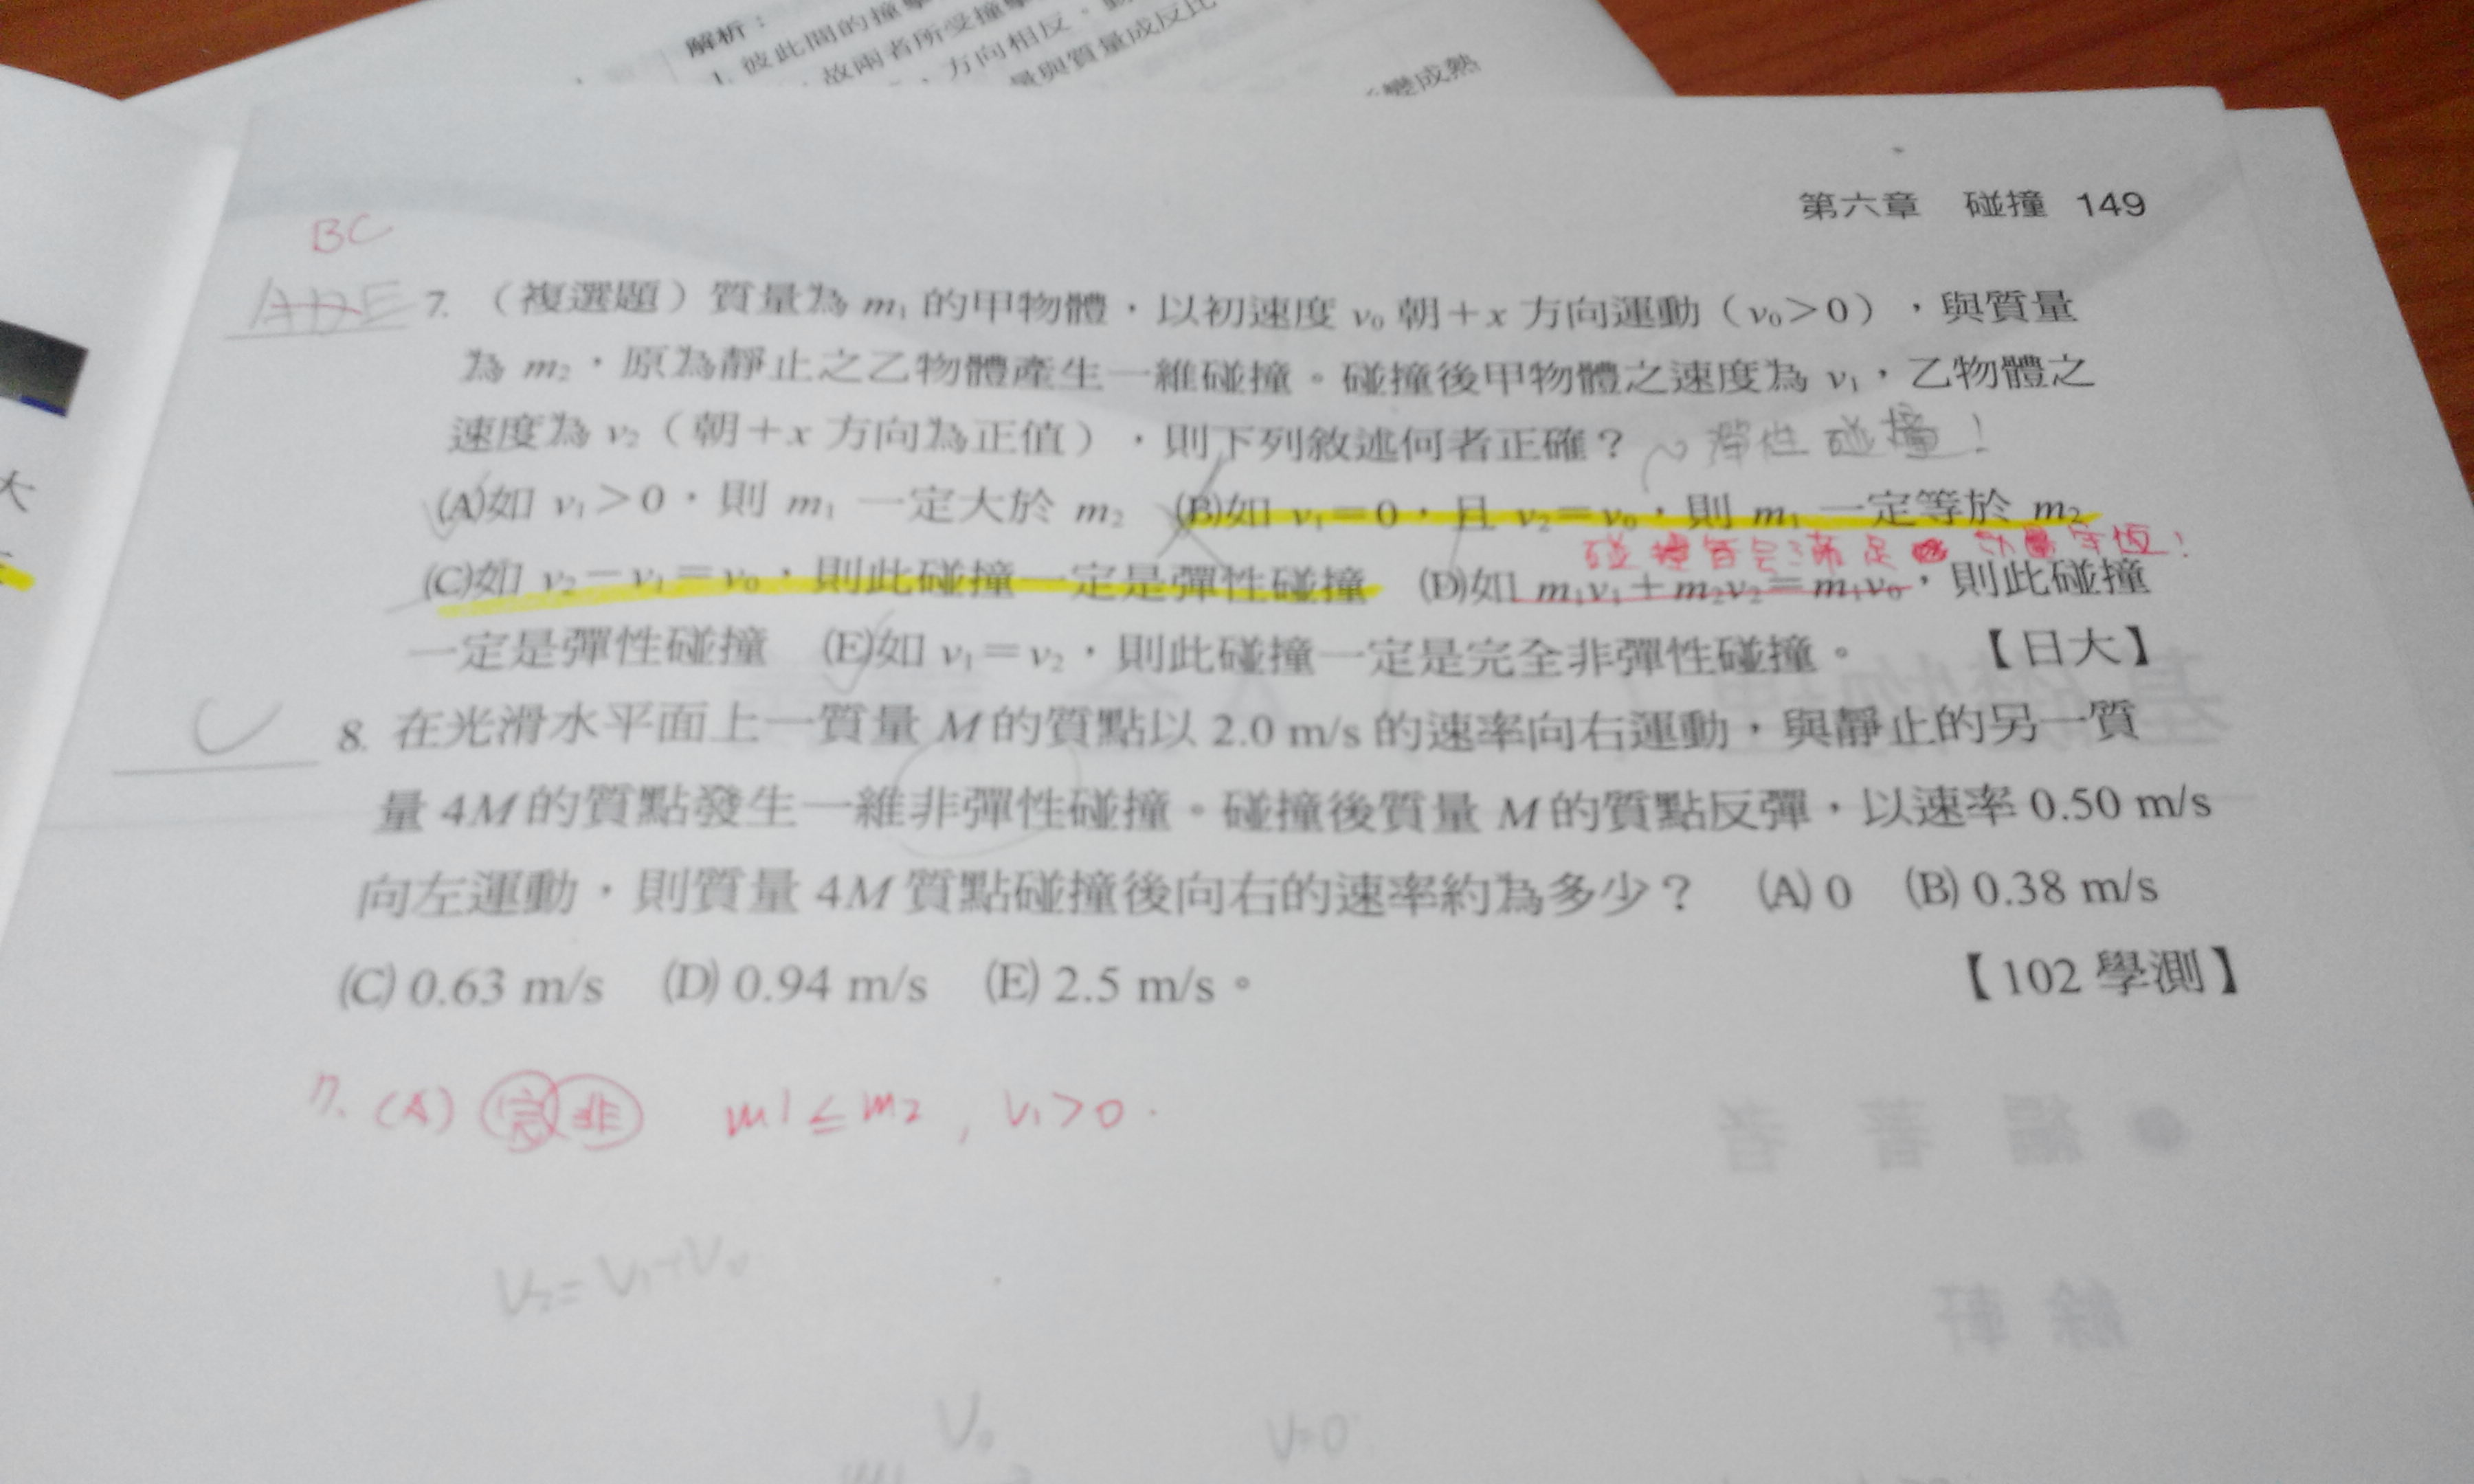 解析：
1. 彼此間的撞擊
故兩者所受撞擊
，方向相反，
量與質量成反比
變成熱
第六章 碰撞 149
大
BC
ADE
7. （複選題）質量為 m₁ 的甲物體，以初速度 v₀ 朝＋x 方向運動（v₀＞0），與質量
為 m₂，原為靜止之乙物體產生一維碰撞。碰撞後甲物體之速度為 v₁，乙物體之
速度為 v₂（朝＋x 方向為正值），則下列敘述何者正確？ ～彈性碰撞！
(A)如 v₁＞0，則 m₁ 一定大於 m₂ (B)如 v₁＝0，且 v₂＝v₀，則 m₁ 一定等於 m₂
碰撞皆會滿足 動量守恆！
(C)如 v₂－v₁＝v₀，則此碰撞一定是彈性碰撞 (D)如 m₁v₁＋m₂v₂＝m₁v₀，則此碰撞
一定是彈性碰撞 (E)如 v₁＝v₂，則此碰撞一定是完全非彈性碰撞。 【日大】
C
8. 在光滑水平面上一質量 M 的質點以 2.0 m/s 的速率向右運動，與靜止的另一質
量 4M 的質點發生一維非彈性碰撞。碰撞後質量 M 的質點反彈，以速率 0.50 m/s
向左運動，則質量 4M 質點碰撞後向右的速率約為多少？ (A) 0 (B) 0.38 m/s
(C) 0.63 m/s (D) 0.94 m/s (E) 2.5 m/s。 【102 學測】
7. (A) 完非 m1≦m2, v1>0.
V₂=V₁+V₀
V₀ V=0